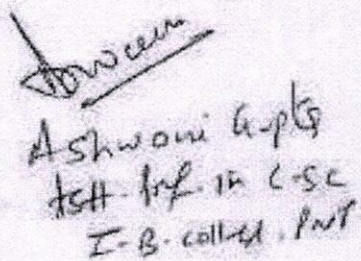 Ashwani Gupta
Astt. Prof. in C-SC
I-B-College. PNP